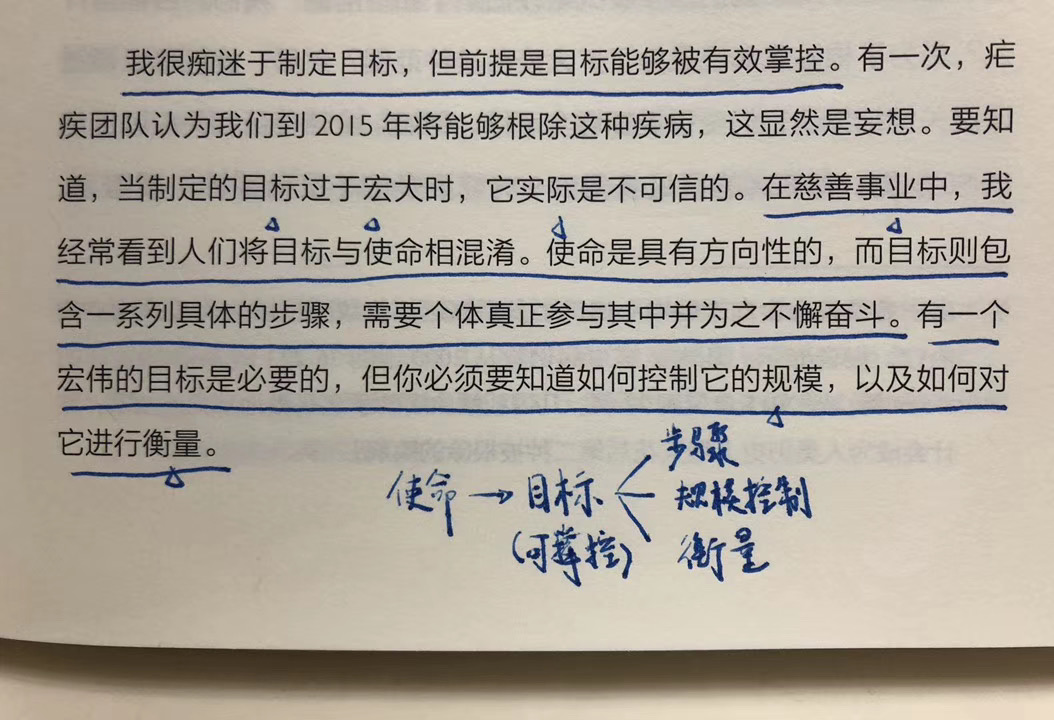 我很痴迷于制定目标，但前提是目标能够被有效掌控。有一次，疟
疾团队认为我们到 2015 年将能够根除这种疾病，这显然是妄想。要知
道，当制定的目标过于宏大时，它实际是不可信的。在慈善事业中，我
经常看到人们将目标与使命相混淆。使命是具有方向性的，而目标则包
含一系列具体的步骤，需要个体真正参与其中并为之不懈奋斗。有一个
宏伟的目标是必要的，但你必须要知道如何控制它的规模，以及如何对
它进行衡量。
步骤
使命 → 目标 规模控制
(可掌控) 衡量